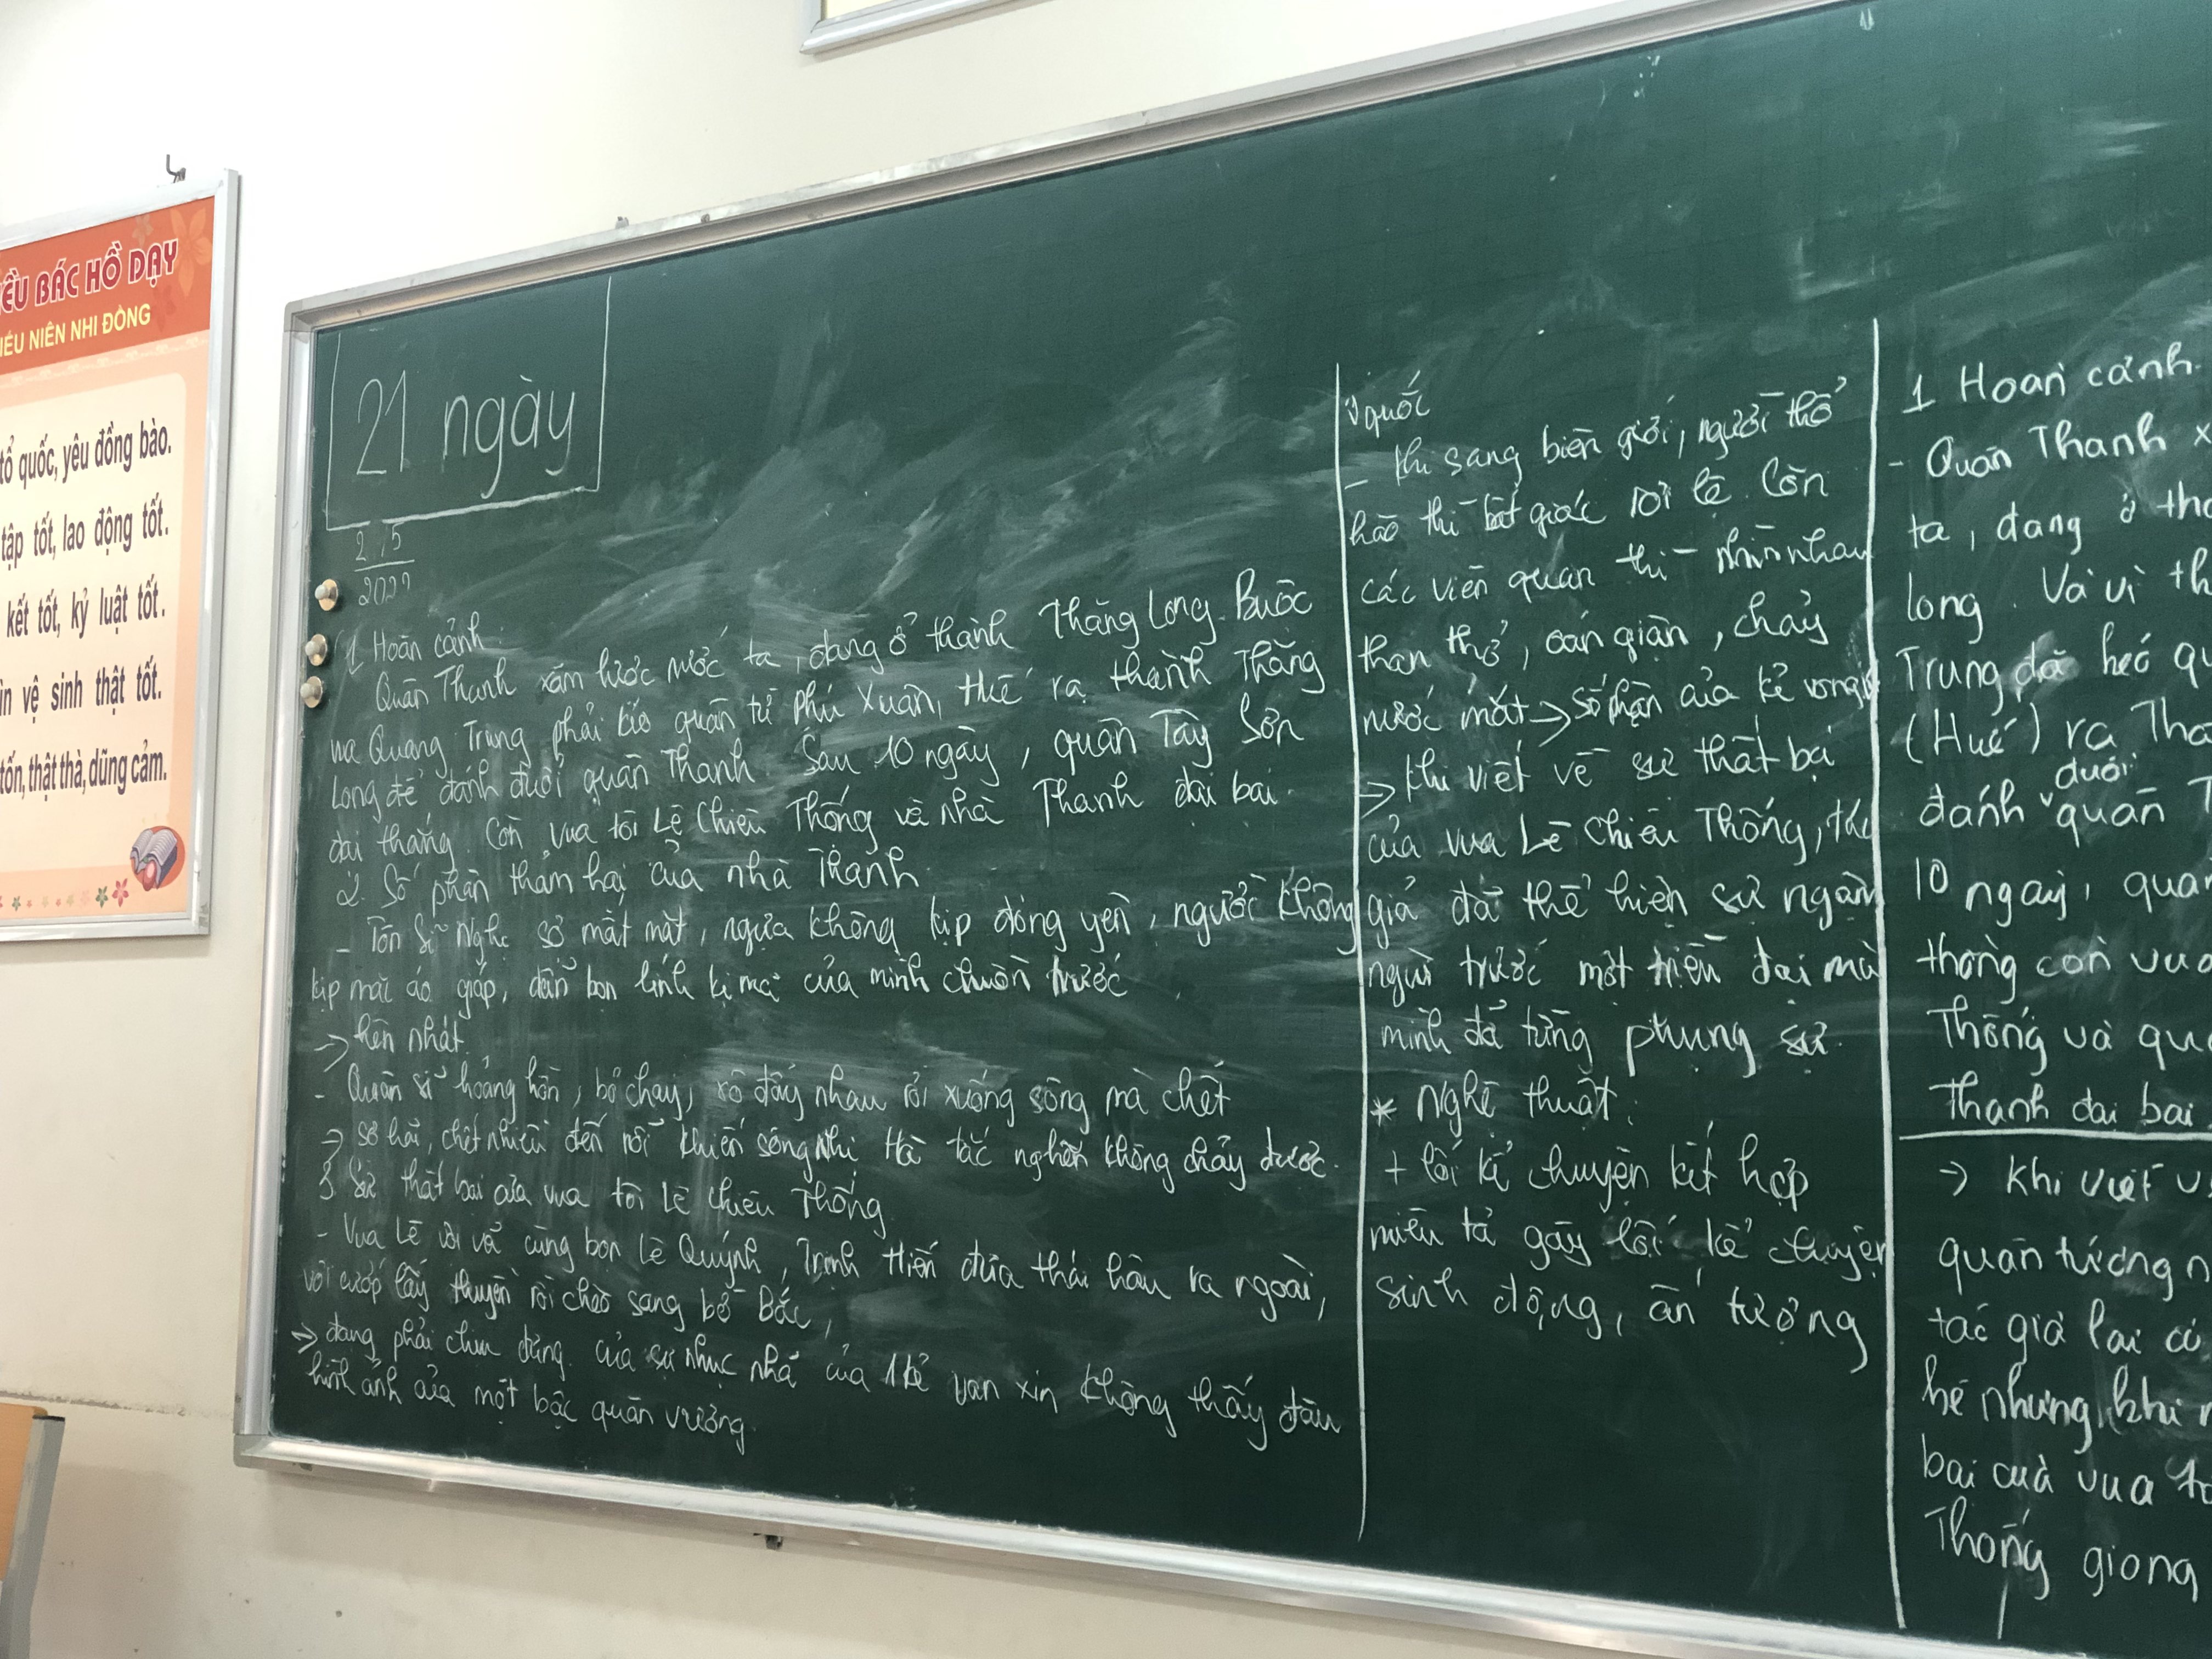 ỀU BÁC HỒ DẠY
IẾU NIÊN NHI ĐỒNG
tổ quốc, yêu đồng bào.
tập tốt, lao động tốt.
kết tốt, kỷ luật tốt.
ìn vệ sinh thật tốt.
tốn, thật thà, dũng cảm.
21 ngày
1 Hoàn cảnh
Quân Thanh xâm lược nước ta, đang ở thành Thăng Long. Buộc
Quang Trung phải kéo quân từ phú Xuân, Huế ra thành Thăng
Long để đánh đuổi quân Thanh. Sau 10 ngày, quân Tây Sơn
đại thắng. Còn vua tôi Lê Chiêu Thống và nhà Thanh đại bại.
2. Số phận thảm hại của nhà Thanh.
- Tôn Sĩ Nghị sợ mất mật, ngựa không kịp đóng yên, người không
kịp mặc áo giáp, dẫn bọn lính kị mã của mình chuồn trước
-> hèn nhát.
- Quân sĩ hoảng hồn, bỏ chạy, xô đẩy nhau rơi xuống sông mà chết
-> sợ hãi, chết nhiều đến nỗi khiến sông Nhị Hà tắc nghẽn không chảy được.
3 Sự thất bại của vua tôi Lê Chiêu Thống
- Vua Lê vội vã cùng bọn Lê Quýnh, Trịnh Hiến đưa thái hậu ra ngoài,
với cướp lấy thuyền rồi chèo sang bờ Bắc,
-> đang phải chịu đựng của sự nhục nhã của 1 kẻ van xin không thấy đâu
hình ảnh của một bậc quân vương
quốc
- Khi sang biên giới, người thổ
hào thì bất giác rơi lệ. Còn
các viên quan thì nhìn nhau
than thở, oán giận, chảy
nước mắt -> Số phận của kẻ vong
-> Khi viết về sự thất bại
của vua Lê Chiêu Thống,
giả đã thể hiện sự ngậm
ngùi trước một triều đại mà
mình đã từng phụng sự.
* Nghệ thuật:
+ lối kể chuyện kết hợp
miêu tả gây lối kể chuyện
sinh động, ấn tượng
1 Hoàn cảnh.
- Quân Thanh x
ta, đang ở tha
long. Và vì th
Trung đã kéo qu
(Huế) ra Tha
đuổi
đánh v quân T
10 ngày, quân
thắng còn vua
Thống và quâ
thanh đại bại.
-> Khi viết v
quân tướng n
tác giả lại có
hê nhưng khi
bại của vua tô
Thống giọng